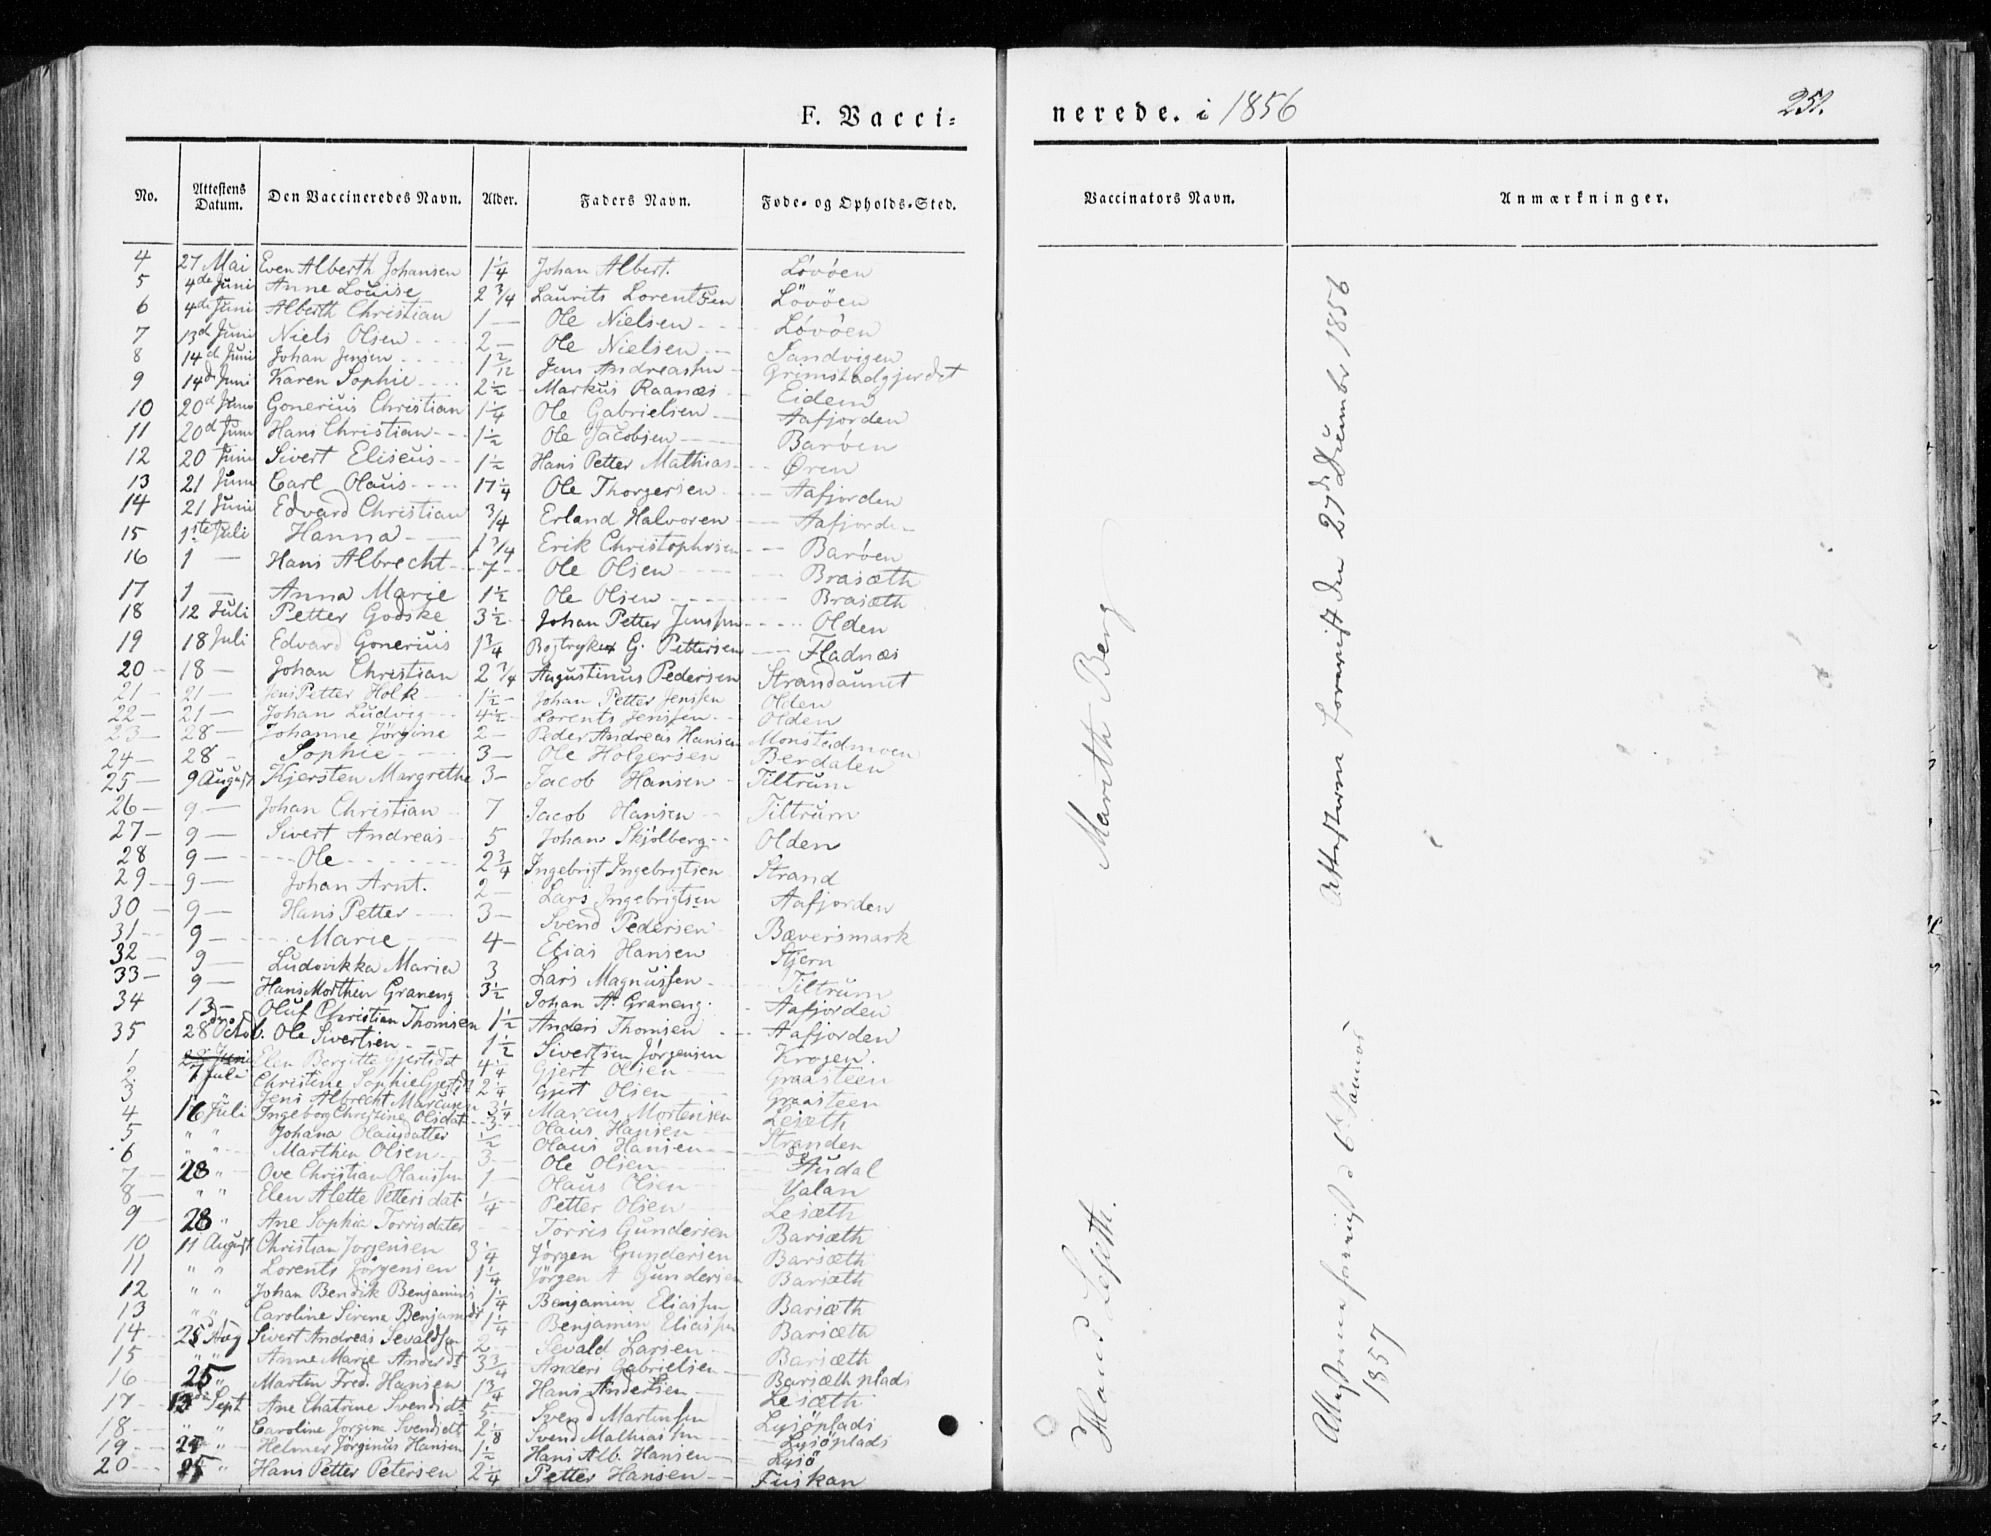 F. Vacci=
nerede. i 1856
251.
No. Attestens Datum. Den Vaccineredes Navn. Alder. Faders Navn. Føde- og Opholds-Sted. Vaccinators Navn. Anmærkninger.
4 27 Mai Even Alberth Johansen 1 1/4 Johan Albert. Løvöen
5 4de Juni Anne Louise 2 3/4 Laurits Lorentsen Løvöen
6 4de Juni Alberth Christian 1 — Ole Nielsen Løvöen
7 13d Juni Niels Olsen 2 — Ole Nielsen Sandvigen
8 14d Juni Johan Jensen 1 2/12 Jens Andreassen Grimstadgjerdet
9 14d Juni Karen Sophie 2 1/2 Markus Raanæs Eidem
10 20d Juni Gonerius Christian 1 1/4 Ole Gabrielsen Aafjorden
11 20d Juni Hans Christian 1 1/2 Ole Jacobsen Barøen
12 20 Juni Sivert Eliseus 1 1/2 Hans Petter Mathias Øren
13 21 Juni Carl Olaus 17 1/4 Ole Thorgersen Aafjorden
14 21 Juni Edvard Christian 3/4 Erland Halvoren Aafjorden
15 1ste Juli Hanna 1 3/4 Erik Christophersen Barøen
16 1 — Hans Albrecht 7 Ole Olsen Brasæth
17 1 — Anna Marie 1 1/2 Ole Olsen Brasæth
18 12 Juli Petter Godske 3 1/2 Johan Petter Jenssen Olden
19 18 Juli Edvard Gonerius 1 3/4 Bogtrykker G. Pettersen Fladnæs
20 18 — Johan Christian 2 3/4 Augustinus Pedersen Strandaunet
21 21 — Jens Petter Holk 1 1/2 Johan Petter Jenssen Olden
22 21 — Johan Ludvig 4 1/2 Lorents Jenssen Olden
23 28 — Johanne Jørgine 2 — Peder Andreas Hansen Monstadmoen
24 28 — Sophie 3 — Ole Holgersen Berdalen
25 9 August Kjersten Margrethe 3 — Jacob Hansen Tiltrum
26 9 — Johan Christian 7 Jacob Hansen Tiltrum
27 9 — Sivert Andreas 5 Johan Skjølberg Olden
28 9 — Ole 2 3/4 Ingebrigt Ingebrigtsen Strand
29 9 — Johan Arnt. 2 — Lars Ingebrigtsen Aafjorden
30 9 — Hans Petter 3 — Svend Pedersen Bæversmark
31 9 — Marie 4 — Elias Hansen Stjern
32 9 — Ludovikka Maria 3 Lars Magnussen Tiltrum
33 9 — Hans Morthen Graneng 3 1/2 Johan A. Graneng Aafjorden
34 13 — Oluf Christian Thomsen 1 1/2 Anders Thomsen Aafjorden
35 28 Octob. Ole Sivertsen 1 1/2 Sivertsen Jørgensen Krogen.
1 Elen Bergitte Gjertsdat 4 1/4 Gjert Olsen Graasteen
2 7 Juli Christine Sophie Gjertsd 2 1/4 Gjert Olsen Graasteen
3 " " Jens Albrecht Marcusen 3 1/4 Marcus Mortensen Lesæth
4 16 Juli Ingeborg Christine Olsdat 3 Olaus Hansen Stranden
5 " " Johana Olausdatter 1/2 Olaus Hansen do
6 " " Marthin Olsen 3 Ole Olsen Audal
7 28 " Ove Christian Olaussen 1 Olaus Olsen Valan
8 " " Elen Alette Pettersdat 1/4 Petter Olsen Lesæth
9 28 " Ane Sophia Torrisdater Torris Gundersen Barsæth
10 11 August Christian Jorgensen 3 1/4 Jørgen Gundersen Barsæth
11 " " Lorents Jørgensen 1 1/4 Jörgen A Gundersen Barsæth
12 " " Johan Bendik Benjamins 1 1/4 Benjamin Eliassen Barsæth
13 " " Caroline Sirena Benjamdt 1 1/4 Benjamin Eliassen Barsæth
14 25 Aug Sivert Andreas Sevaldsen 2 Sevald Larsen Barsæth
15 " " Anne Marie Andersdt 3 3/4 Anders Gabrielsen Barsæth plads
16 25 " Martin Fred. Hansen 1 3/4 Hans Andersen Lesæth
17 12 Sept Ane Chatrine Svendsdt 5 Svend Martinsen Lysöplads
18 " " Caroline Jorgine Svendsdt 2 1/8 Svend Mathiassen Lysöplads
19 25 " Helmer Jørginus Hansen 1 1/2 Hans Alb. Hansen Lysö
20 25 " Hans Petter Petersen 2 1/4 Petter Hansen Fuskan
Mareth Berg
Hans Leseth.
Attesterne foreviist den 27d Decembr 1856
Attesterne foreviist d 6te Januar
1857